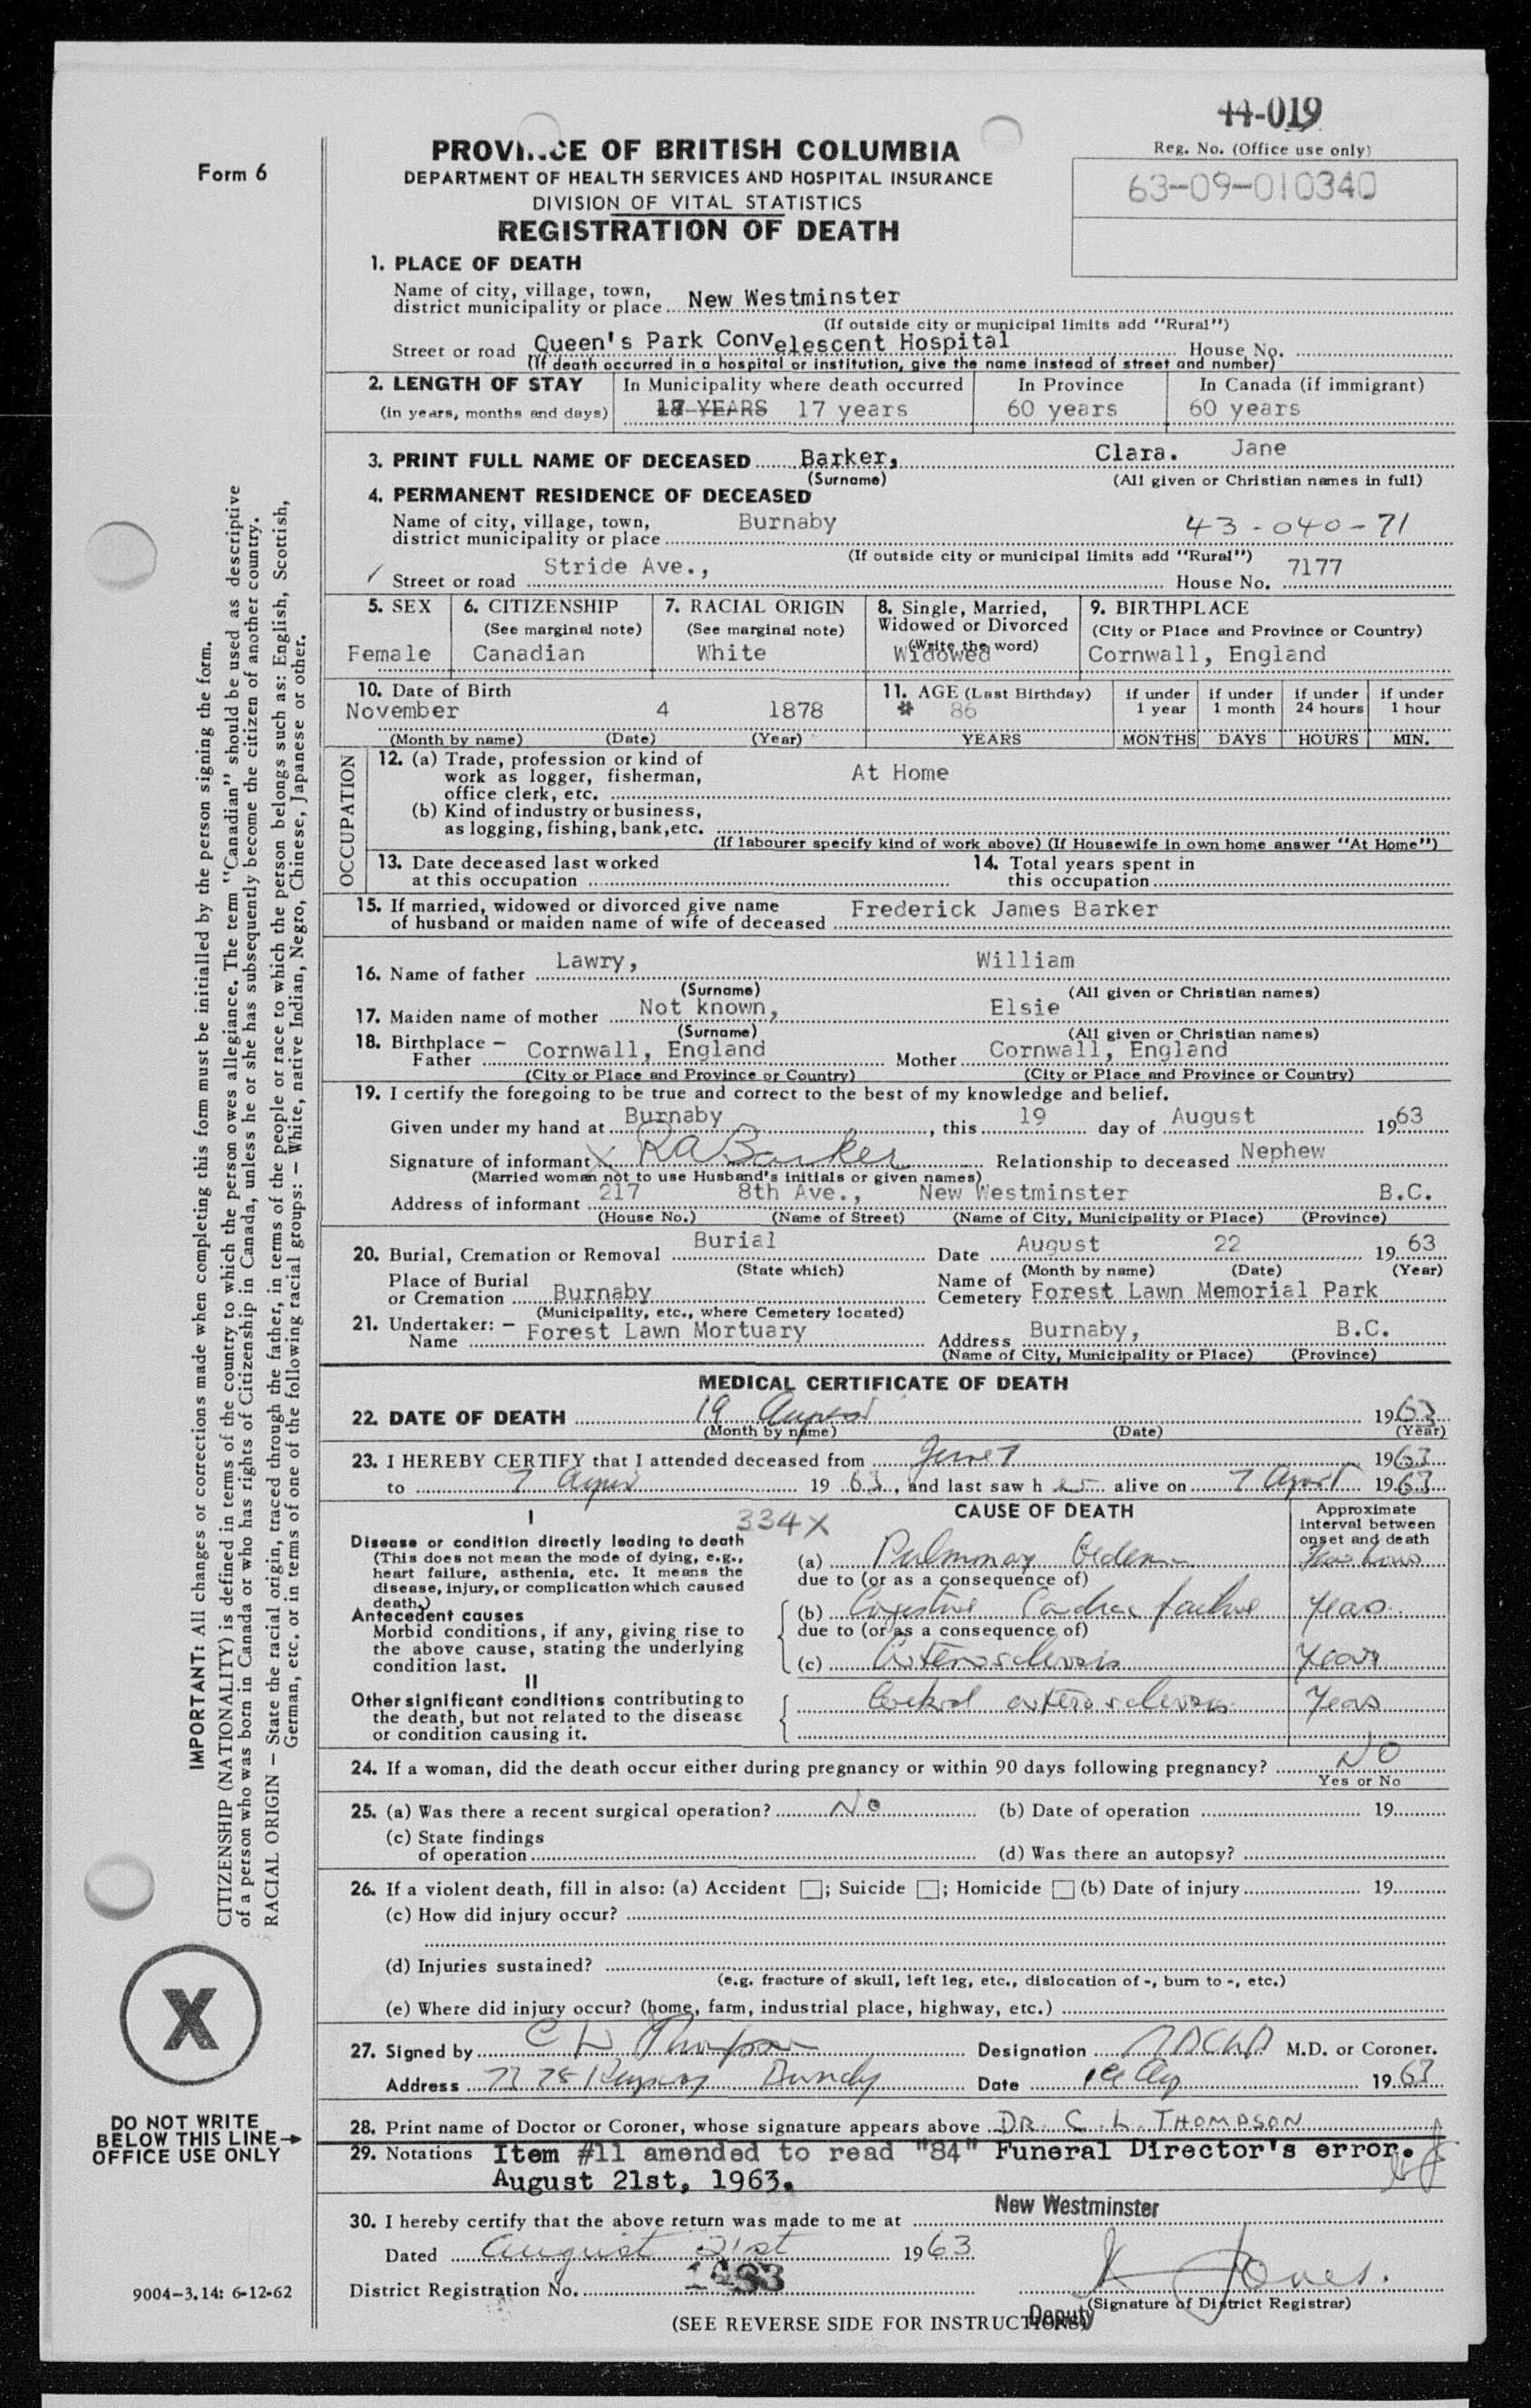 44-019
Form 6
PROVI..CE OF BRITISH COLUMBIA
Reg. No. (Office use only)
DEPARTMENT OF HEALTH SERVICES AND HOSPITAL INSURANCE
63-09-010340
DIVISION OF VITAL STATISTICS
REGISTRATION OF DEATH
1. PLACE OF DEATH
Name of city, village, town,
district municipality or place New Westminster
(If outside city or municipal limits add "Rural")
Street or road Queen's Park Convelescent Hospital House No.
(If death occurred in a hospital or institution, give the name instead of street and number)
2. LENGTH OF STAY In Municipality where death occurred In Province In Canada (if immigrant)
(in years, months and days) 17 years 60 years 60 years
3. PRINT FULL NAME OF DECEASED Barker, Clara. Jane
(Surname) (All given or Christian names in full)
4. PERMANENT RESIDENCE OF DECEASED
Name of city, village, town,
district municipality or place Burnaby 43-040-71
(If outside city or municipal limits add "Rural")
Street or road Stride Ave., House No. 7177
5. SEX 6. CITIZENSHIP 7. RACIAL ORIGIN 8. Single, Married, 9. BIRTHPLACE
(See marginal note) (See marginal note) Widowed or Divorced (City or Place and Province or Country)
(Write the word)
Female Canadian White Widowed Cornwall, England
10. Date of Birth 11. AGE (Last Birthday) if under if under if under if under
1 year 1 month 24 hours 1 hour
November 4 1878 # 86
(Month by name) (Date) (Year) YEARS MONTHS DAYS HOURS MIN.
OCCUPATION
12. (a) Trade, profession or kind of
work as logger, fisherman,
office clerk, etc. At Home
(b) Kind of industry or business,
as logging, fishing, bank, etc.
(If labourer specify kind of work above) (If Housewife in own home answer "At Home")
13. Date deceased last worked 14. Total years spent in
at this occupation this occupation
15. If married, widowed or divorced give name
of husband or maiden name of wife of deceased Frederick James Barker
16. Name of father Lawry, William
(Surname) (All given or Christian names)
17. Maiden name of mother Not known, Elsie
(Surname) (All given or Christian names)
18. Birthplace –
Father Cornwall, England Mother Cornwall, England
(City or Place and Province or Country) (City or Place and Province or Country)
19. I certify the foregoing to be true and correct to the best of my knowledge and belief.
Given under my hand at Burnaby, this 19 day of August 1963
Signature of informant X RA Barker Relationship to deceased Nephew
(Married woman not to use Husband's initials or given names)
Address of informant 217 8th Ave., New Westminster B.C.
(House No.) (Name of Street) (Name of City, Municipality or Place) (Province)
20. Burial, Cremation or Removal Burial Date August 22 1963
(State which) (Month by name) (Date) (Year)
Place of Burial Name of
or Cremation Burnaby Cemetery Forest Lawn Memorial Park
(Municipality, etc., where Cemetery located)
21. Undertaker: –
Name Forest Lawn Mortuary Address Burnaby, B.C.
(Name of City, Municipality or Place) (Province)
MEDICAL CERTIFICATE OF DEATH
22. DATE OF DEATH 19 August 1963
(Month by name) (Date) (Year)
23. I HEREBY CERTIFY that I attended deceased from June 7 1963
to 7 August 1963, and last saw her alive on 7 August 1963
I 334X CAUSE OF DEATH Approximate
interval between
onset and death
Disease or condition directly leading to death
(This does not mean the mode of dying, e.g.,
heart failure, asthenia, etc. It means the
disease, injury, or complication which caused
death.)
(a) Pulmonary Oedema hours
due to (or as a consequence of)
Antecedent causes
Morbid conditions, if any, giving rise to
the above cause, stating the underlying
condition last.
(b) Congestive Cardiac failure Years
due to (or as a consequence of)
(c) Arteriosclerosis Years
II
Other significant conditions contributing to
the death, but not related to the disease
or condition causing it.
Cerebral arteriosclerosis Years
24. If a woman, did the death occur either during pregnancy or within 90 days following pregnancy? No
Yes or No
25. (a) Was there a recent surgical operation? No (b) Date of operation 19
(c) State findings
of operation (d) Was there an autopsy?
26. If a violent death, fill in also: (a) Accident ; Suicide ; Homicide (b) Date of injury 19
(c) How did injury occur?
(d) Injuries sustained?
(e.g. fracture of skull, left leg, etc., dislocation of -, burn to -, etc.)
(e) Where did injury occur? (home, farm, industrial place, highway, etc.)
27. Signed by C L Thompson Designation M.D. or Coroner.
Address Date 1963
28. Print name of Doctor or Coroner, whose signature appears above DR. C. L. THOMPSON
29. Notations Item #11 amended to read "84" Funeral Director's error.
August 21st, 1963.
30. I hereby certify that the above return was made to me at New Westminster
Dated August 21st 1963
District Registration No. Jones.
Deputy (Signature of District Registrar)
(SEE REVERSE SIDE FOR INSTRUCTIONS)
IMPORTANT: All changes or corrections made when completing this form must be initialled by the person signing the form.
CITIZENSHIP (NATIONALITY) is defined in terms of the country to which the person owes allegiance. The term "Canadian" should be used as descriptive
of a person who was born in Canada or who has rights of Citizenship in Canada, unless he or she has subsequently become the citizen of another country.
RACIAL ORIGIN – State the racial origin, traced through the father, in terms of the people or race to which the person belongs such as: English, Scottish,
German, etc. or in terms of one of the following racial groups: – White, native Indian, Negro, Chinese, Japanese or other.
X
DO NOT WRITE
BELOW THIS LINE→
OFFICE USE ONLY
9004-3.14: 6-12-62